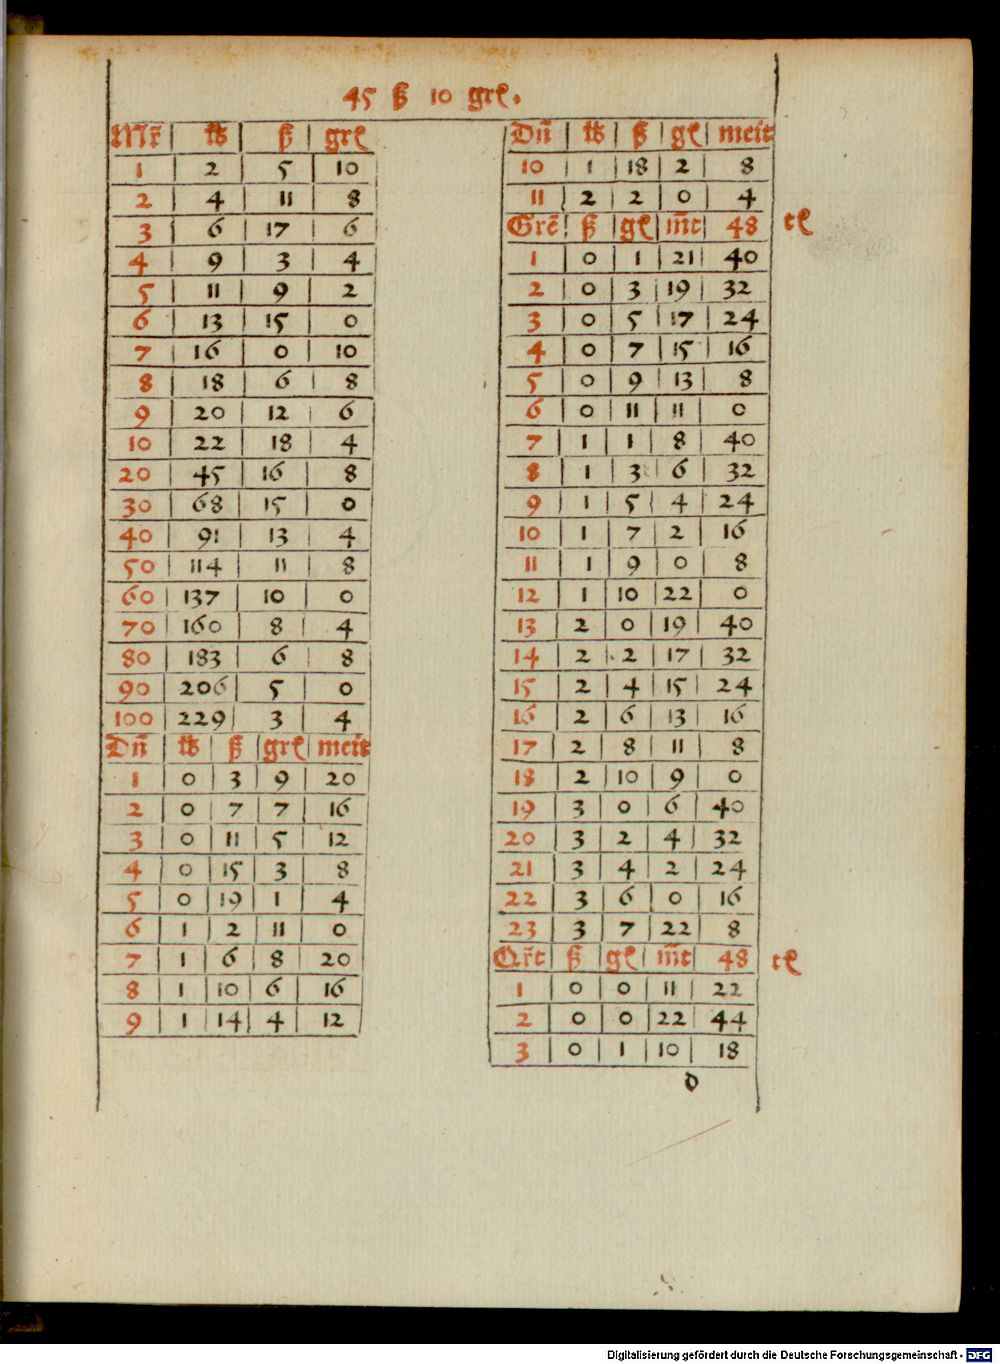 45 ß 10 grl.
Mr̃ lb ß grl
1 2 5 10
2 4 11 8
3 6 17 6
4 9 3 4
5 11 9 2
6 13 15 0
7 16 0 10
8 18 6 8
9 20 12 6
10 22 18 4
20 45 16 8
30 68 15 0
40 91 13 4
50 114 11 8
60 137 10 0
70 160 8 4
80 183 6 8
90 206 5 0
100 229 3 4
Dñ lb ß grl meit
1 0 3 9 20
2 0 7 7 16
3 0 11 5 12
4 0 15 3 8
5 0 19 1 4
6 1 2 11 0
7 1 6 8 20
8 1 10 6 16
9 1 14 4 12
Dñ lb ß gl meit
10 1 18 2 8
11 2 2 0 4
Grẽ ß gl m̃t 48 tl
1 0 1 21 40
2 0 3 19 32
3 0 5 17 24
4 0 7 15 16
5 0 9 13 8
6 0 11 11 0
7 1 1 8 40
8 1 3 6 32
9 1 5 4 24
10 1 7 2 16
11 1 9 0 8
12 1 10 22 0
13 2 0 19 40
14 2 2 17 32
15 2 4 15 24
16 2 6 13 16
17 2 8 11 8
18 2 10 9 0
19 3 0 6 40
20 3 2 4 32
21 3 4 2 24
22 3 6 0 16
23 3 7 22 8
Qr̃t ß gl m̃t 48 tl
1 0 0 11 22
2 0 0 22 44
3 0 1 10 18
d
Digitalisierung gefördert durch die Deutsche Forschungsgemeinschaft - DFG